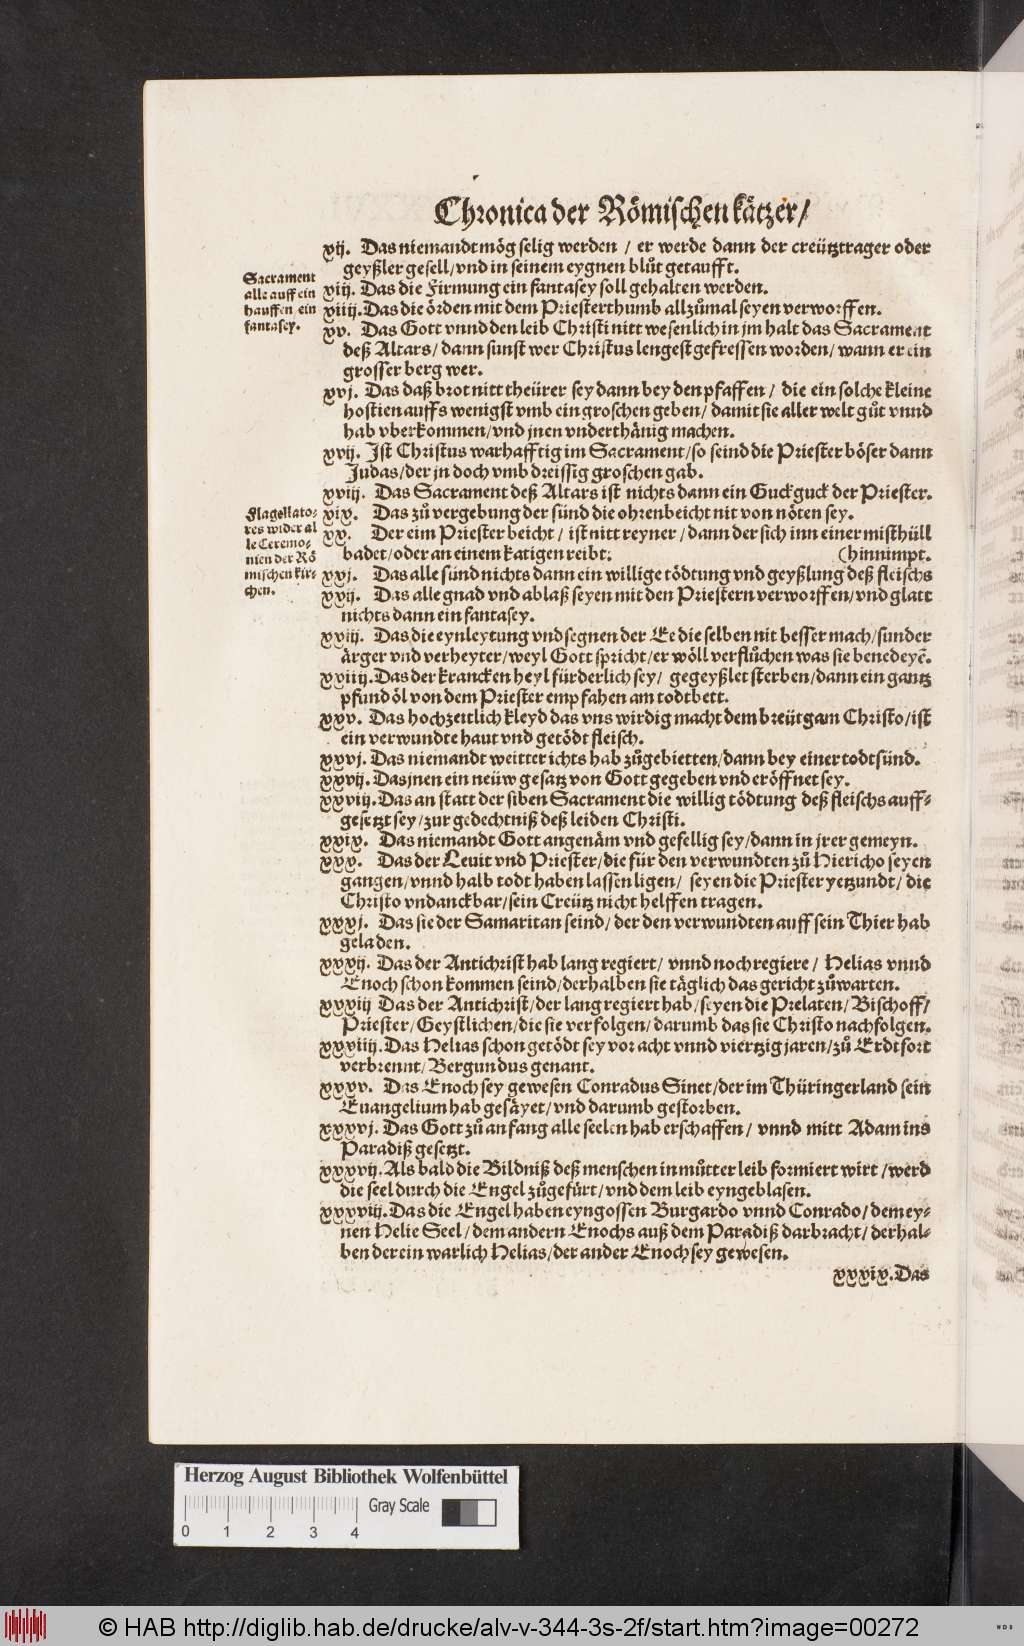 Chronica der Römischen kätzer/
xij. Das niemandt mög selig werden / er werde dann der creütztrager oder
geyßler gesell/vnd in seinem eygnen blůt getaufft.
Sacrament
alle auff ein
hauffen/ein
fantasey.
xiij. Das die Firmung ein fantasey soll gehalten werden.
xiiij. Das die örden mit dem Priesterthumb allzůmal seyen verworffen.
xv. Das Gott vnnd den leib Christi nitt wesenlich in jm halt das Sacrament
deß Altars/dann sunst wer Christus lengest gefressen worden/wann er ein
grosser berg wer.
xvj. Das daß brot nitt theürer sey dann bey den pfaffen / die ein solche kleine
hostien auffs wenigst vmb ein groschen geben/damit sie aller welt gůt vnnd
hab vberkommen/vnd jnen vnderthänig machen.
xvij. Ist Christus warhafftig im Sacrament/so seind die Priester böser dann
Judas/der jn doch vmb dreissig groschen gab.
xviij. Das Sacrament deß Altars ist nichts dann ein Guckguck der Priester.
Flagellato-
res wider al
le Ceremo-
nien der Rö
mischen kir-
chen.
xix. Das zů vergebung der sünd die ohrenbeicht nit von nöten sey.
xx. Der eim Priester beicht / ist nitt reyner / dann der sich inn einer misthüll
badet/oder an einem katigen reibt. (hinnimpt.
xxj. Das alle sünd nichts dann ein willige tödtung vnd geyßlung deß fleischs
xxij. Das alle gnad vnd ablaß seyen mit den Priestern verworffen/vnd glatt
nichts dann ein fantasey.
xxiij. Das die eynleytung vnd segnen der Ee die selben nit besser mach/sunder
ärger vnd verheyter/weyl Gott spricht/er wöll verflůchen was sie benedeyẽ.
xxiiij. Das der krancken heyl fürderlich sey / gegeyßlet sterben/dann ein gantz
pfund öl von dem Priester empfahen am todtbett.
xxv. Das hochzeitlich kleyd das vns wirdig macht dem breütgam Christo/ist
ein verwundte haut vnd getödt fleisch.
xxvj. Das niemandt weitter ichts hab zůgebietten/dann bey einer todtsünd.
xxvij. Das jnen ein neüw gesatz von Gott gegeben vnd eröffnet sey.
xxviij. Das an statt der siben Sacrament die willig tödtung deß fleischs auff-
gesetzt sey/zur gedechtniß deß leiden Christi.
xxix. Das niemandt Gott angenäm vnd gefellig sey/dann in jrer gemeyn.
xxx. Das der Leuit vnd Priester/die für den verwundten zů Hiericho seyen
gangen/vnnd halb todt haben lassen ligen / seyen die Priester yetzundt / die
Christo vndanckbar/sein Creütz nicht helffen tragen.
xxxj. Das sie der Samaritan seind/der den verwundten auff sein Thier hab
geladen.
xxxij. Das der Antichrist hab lang regiert/ vnnd noch regiere / Helias vnnd
Enoch schon kommen seind/derhalben sie täglich das gericht zůwarten.
xxxiij Das der Antichrist/der lang regiert hab/seyen die Prelaten/Bischoff/
Priester/Geystlichen/die sie verfolgen/darumb das sie Christo nachfolgen.
xxxiiij. Das Helias schon getödt sey vor acht vnnd viertzig jaren/zů Erdtsort
verbrennt/Bergundus genant.
xxxv. Das Enoch sey gewesen Conradus Sinet/der im Thüringerland sein
Euangelium hab gesäyet/vnd darumb gestorben.
xxxvj. Das Gott zů anfang alle seelen hab erschaffen / vnnd mitt Adam ins
Paradiß gesetzt.
xxxvij. Als bald die Bildniß deß menschen in můtter leib formiert wirt / werd
die seel durch die Engel zůgefürt/vnd dem leib eyngeblasen.
xxxviij. Das die Engel haben eyngossen Burgardo vnnd Conrado/dem ey-
nen Helie Seel/dem andern Enochs auß dem Paradiß darbracht/derhal-
ben der ein warlich Helias/der ander Enoch sey gewesen.
xxxix. Das
Herzog August Bibliothek Wolfenbüttel
Gray Scale
0 1 2 3 4
© HAB http://diglib.hab.de/drucke/alv-v-344-3s-2f/start.htm?image=00272